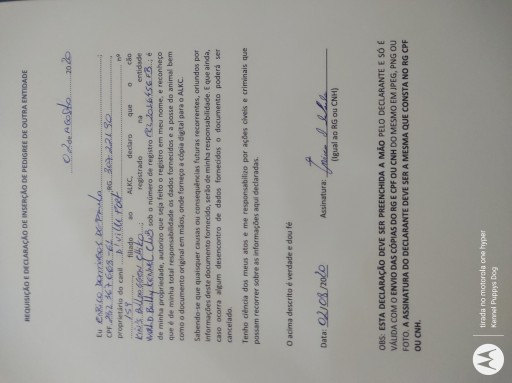 REQUISIÇÃO E DECLARAÇÃO DE INSERÇÃO DE PEDIGREE DE OUTRA ENTIDADE
01 de Agosto 2020
Eu
CPF RG
proprietário do canil nº
159 filiado ao ALKC, declaro que o cão
registrado na entidade
World Bully Kennel Club sob o número de registro é
de minha propriedade, autorizo que seja feito o registro em meu nome, e reconheço
que é de minha total responsabilidade os dados fornecidos e a posse do animal bem
como o documento original em mãos, onde forneço a cópia digital para o ALKC.
Sabendo-se que quaisquer causas ou consequências futuras recorrentes, oriundos por
informações deste documento fornecido, serão de minha responsabilidade. E que ainda,
caso ocorra algum desencontro de dados fornecidos o documento poderá ser
cancelado.
Tenho ciência dos meus atos e me responsabilizo por ações cíveis e criminais que
possam recorrer sobre as informações aqui declaradas.
O acima descrito é verdade e dou fé
Data: 02/08/2020 Assinatura:
(Igual ao RG ou CNH)
OBS: ESTA DECLARAÇÃO DEVE SER PREENCHIDA A MÃO PELO DECLARANTE E SÓ É
VÁLIDA COM O ENVIO DAS CÓPIAS DO RG E CPF OU CNH DO MESMO EM JPEG, PNG OU
FOTO. A ASSINATURA DO DECLARANTE DEVE SER A MESMA QUE CONSTA NO RG CPF
OU CNH.
tirada no motorola one hyper
Kennel Puppys Dog